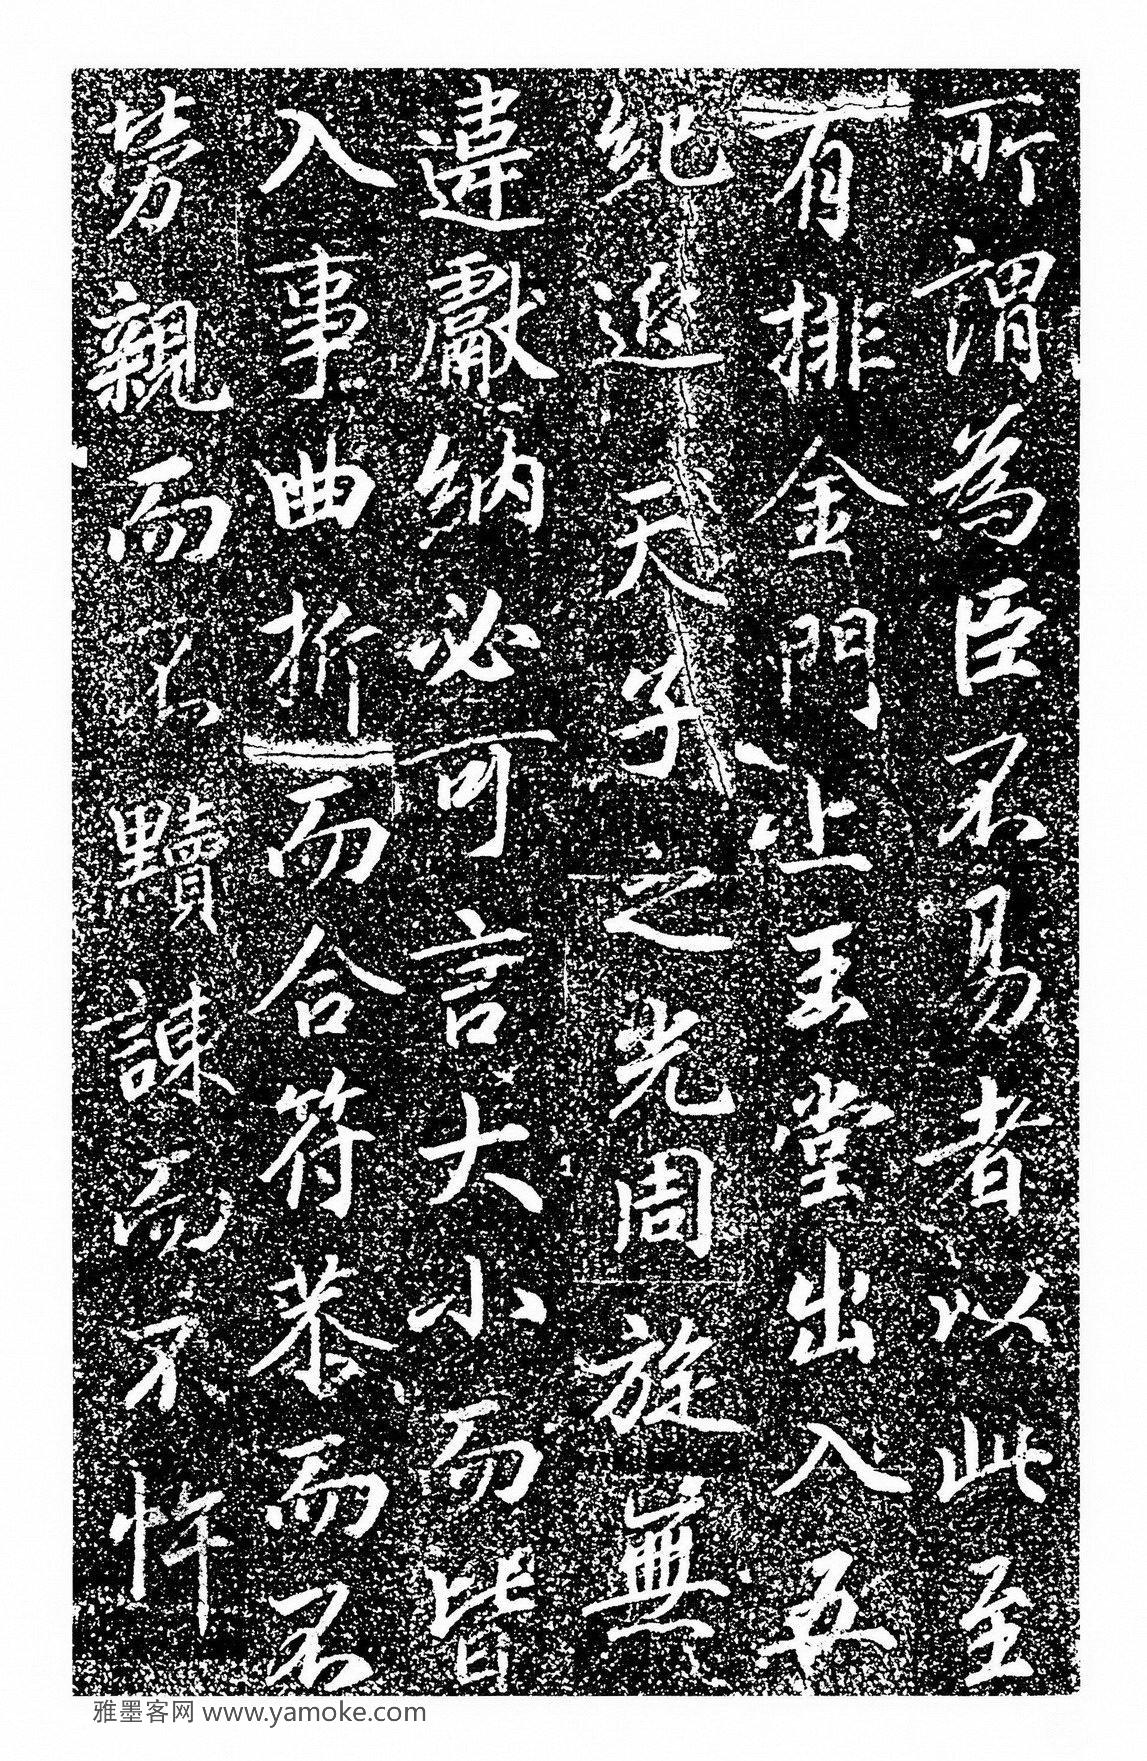 所謂為臣不易者以此至
有排金門上玉堂出入五
紀近天子之光周旋無
違獻納必可言大小而皆
入事曲折而合符恭而不
勞親而不黷諫而不忤
雅墨客网 www.yamoke.com